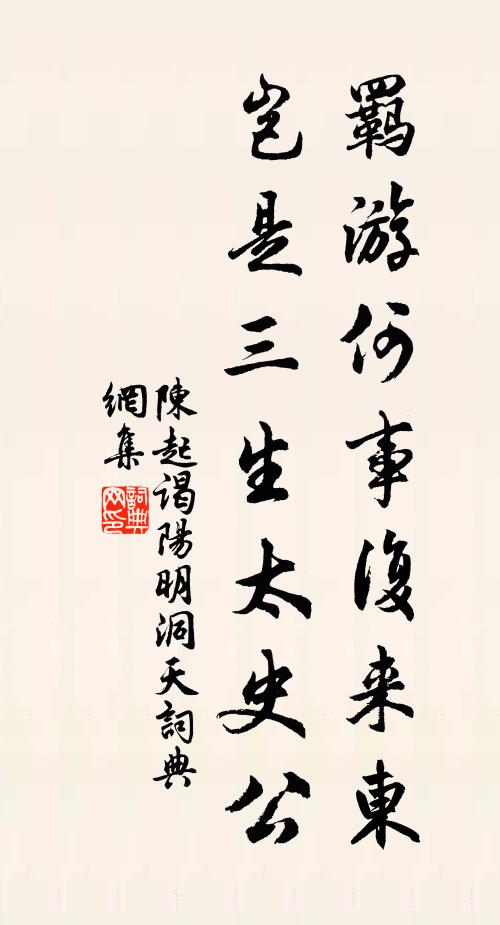 羈游何事復来東
豈是三生太史公
陳起謁陽明洞天詞典
網集
詞典
网印